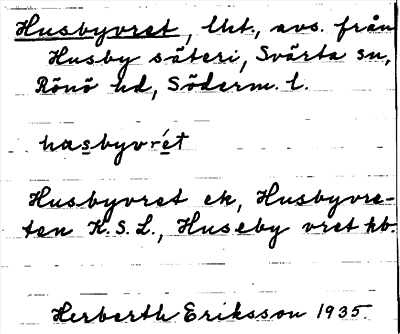 Husbyvret, lht., avs. från
Husby säteri, Svärta sn,
Rönö hd, Söderm. l.
hasbyvrét
Husbyvret ek, Husbyvre-
ten K.S.L., Huseby vret kb.
Herberth Eriksson 1935.